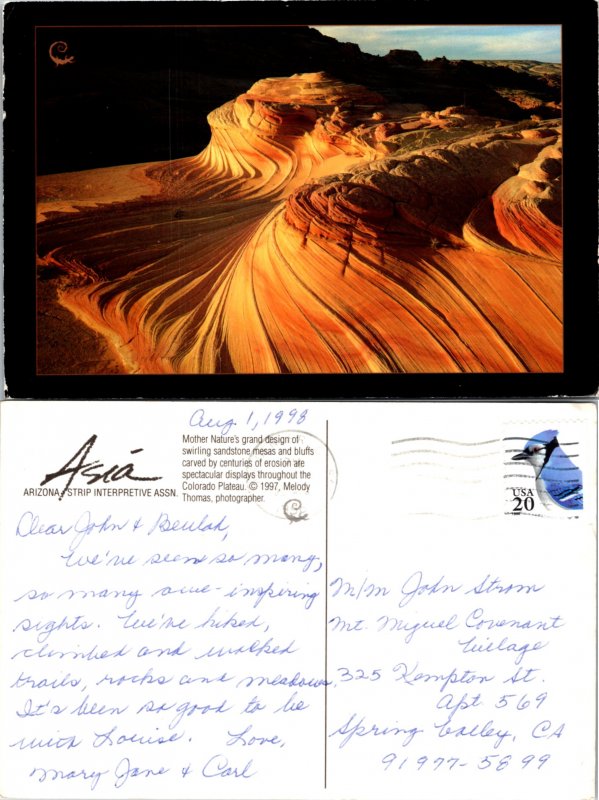 Aug 1, 1998
Asiá
ARIZONA STRIP INTERPRETIVE ASSN.
Mother Nature's grand design of
swirling sandstone mesas and bluffs
carved by centuries of erosion are
spectacular displays throughout the
Colorado Plateau. © 1997, Melody
Thomas, photographer.
USA
20
Dear John & Beulah,
We've seen so many,
so many awe-inspiring
sights. We've hiked,
climbed and walked
trails, rocks and meadows.
It's been so good to be
with Louise. Love,
Mary Jane & Carl
M/M John Strom
Mt. Miguel Covenant
Village
325 Kempton St.
Apt 569
Spring Valley, CA
91977-5899